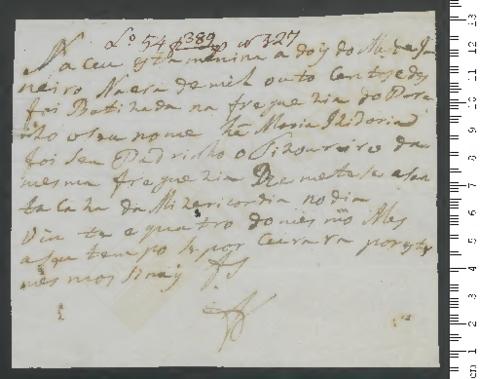 Lº 54 f 389 nº 327
Naceu esta menina a dois do Mes de Ja
neiro Na era de mil outo Centos e dis
foi Batizada na freguezia do Para
izo o seu nome he Maria Izidoria
foi seu Padrinho o Tizoureiro da
mesma freguezia Remetese a San
ta Caza da Mizericordia no dia
Vin te e quatro do mes mo Mes
a seu tempo se por Curara por estes
mesmos Sinais